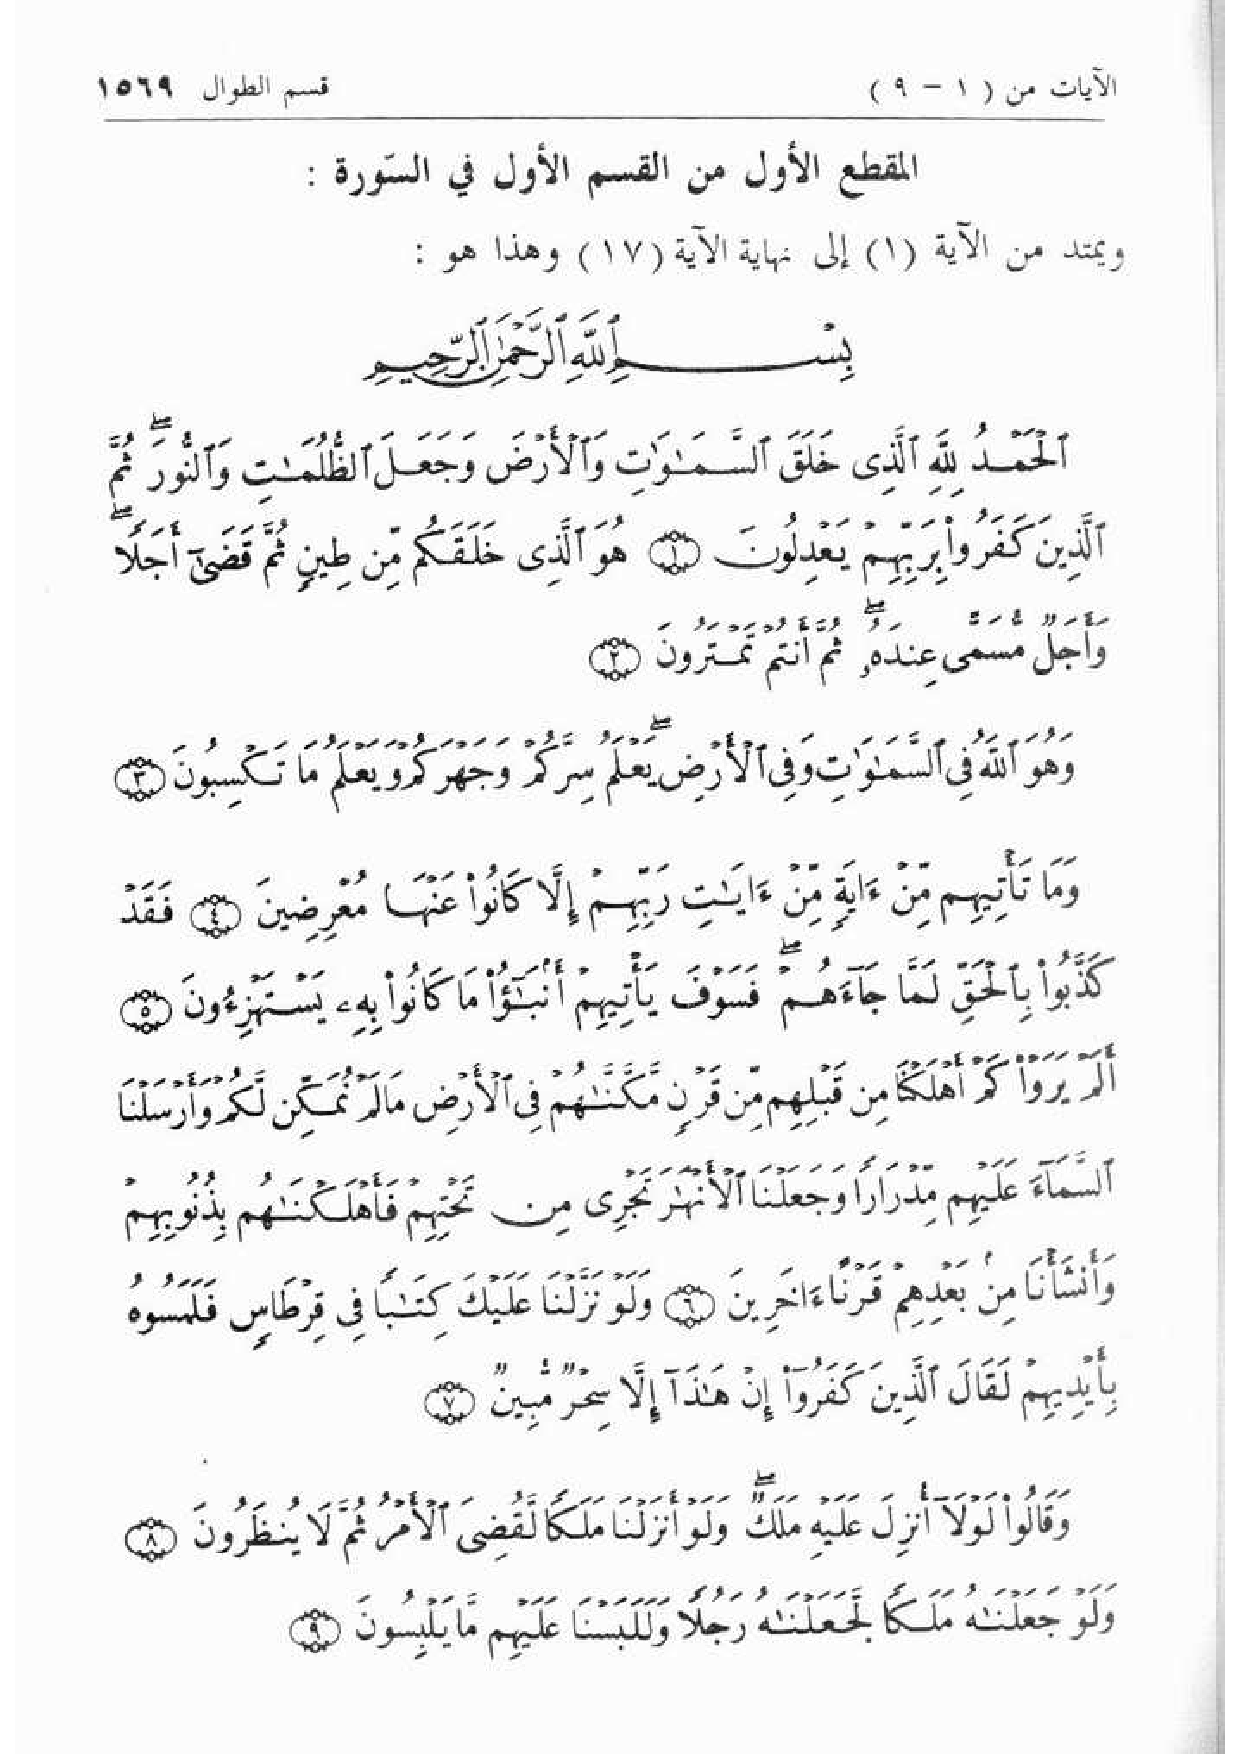 الآيات من ( ١ - ٩ ) قسم الطوال ١٥٦٩
المقطع الأول من القسم الأول في السّورة :
ويمتد من الآية (١) إلى نهاية الآية (١٧) وهذا هو :
بِسْمِ ٱللَّهِ ٱلرَّحْمَٰنِ ٱلرَّحِيمِ
ٱلْحَمْدُ لِلَّهِ ٱلَّذِى خَلَقَ ٱلسَّمَٰوَٰتِ وَٱلْأَرْضَ وَجَعَلَ ٱلظُّلُمَٰتِ وَٱلنُّورَ ۖ ثُمَّ
ٱلَّذِينَ كَفَرُوا۟ بِرَبِّهِمْ يَعْدِلُونَ ﴿١﴾ هُوَ ٱلَّذِى خَلَقَكُم مِّن طِينٍ ثُمَّ قَضَىٰٓ أَجَلًا ۖ
وَأَجَلٌ مُّسَمًّى عِندَهُۥ ۖ ثُمَّ أَنتُمْ تَمْتَرُونَ ﴿٢﴾
وَهُوَ ٱللَّهُ فِى ٱلسَّمَٰوَٰتِ وَفِى ٱلْأَرْضِ ۖ يَعْلَمُ سِرَّكُمْ وَجَهْرَكُمْ وَيَعْلَمُ مَا تَكْسِبُونَ ﴿٣﴾
وَمَا تَأْتِيهِم مِّنْ ءَايَةٍ مِّنْ ءَايَٰتِ رَبِّهِمْ إِلَّا كَانُوا۟ عَنْهَا مُعْرِضِينَ ﴿٤﴾ فَقَدْ
كَذَّبُوا۟ بِٱلْحَقِّ لَمَّا جَآءَهُمْ ۖ فَسَوْفَ يَأْتِيهِمْ أَنۢبَٰٓؤُا۟ مَا كَانُوا۟ بِهِۦ يَسْتَهْزِءُونَ ﴿٥﴾
أَلَمْ يَرَوْا۟ كَمْ أَهْلَكْنَا مِن قَبْلِهِم مِّن قَرْنٍ مَّكَّنَّٰهُمْ فِى ٱلْأَرْضِ مَا لَمْ نُمَكِّن لَّكُمْ وَأَرْسَلْنَا
ٱلسَّمَآءَ عَلَيْهِم مِّدْرَارًا وَجَعَلْنَا ٱلْأَنْهَٰرَ تَجْرِى مِن تَحْتِهِمْ فَأَهْلَكْنَٰهُم بِذُنُوبِهِمْ
وَأَنشَأْنَا مِنۢ بَعْدِهِمْ قَرْنًا ءَاخَرِينَ ﴿٦﴾ وَلَوْ نَزَّلْنَا عَلَيْكَ كِتَٰبًا فِى قِرْطَاسٍ فَلَمَسُوهُ
بِأَيْدِيهِمْ لَقَالَ ٱلَّذِينَ كَفَرُوٓا۟ إِنْ هَٰذَآ إِلَّا سِحْرٌ مُّبِينٌ ﴿٧﴾
وَقَالُوا۟ لَوْلَآ أُنزِلَ عَلَيْهِ مَلَكٌ ۖ وَلَوْ أَنزَلْنَا مَلَكًا لَّقُضِىَ ٱلْأَمْرُ ثُمَّ لَا يُنظَرُونَ ﴿٨﴾
وَلَوْ جَعَلْنَٰهُ مَلَكًا لَّجَعَلْنَٰهُ رَجُلًا وَلَلَبَسْنَا عَلَيْهِم مَّا يَلْبِسُونَ ﴿٩﴾